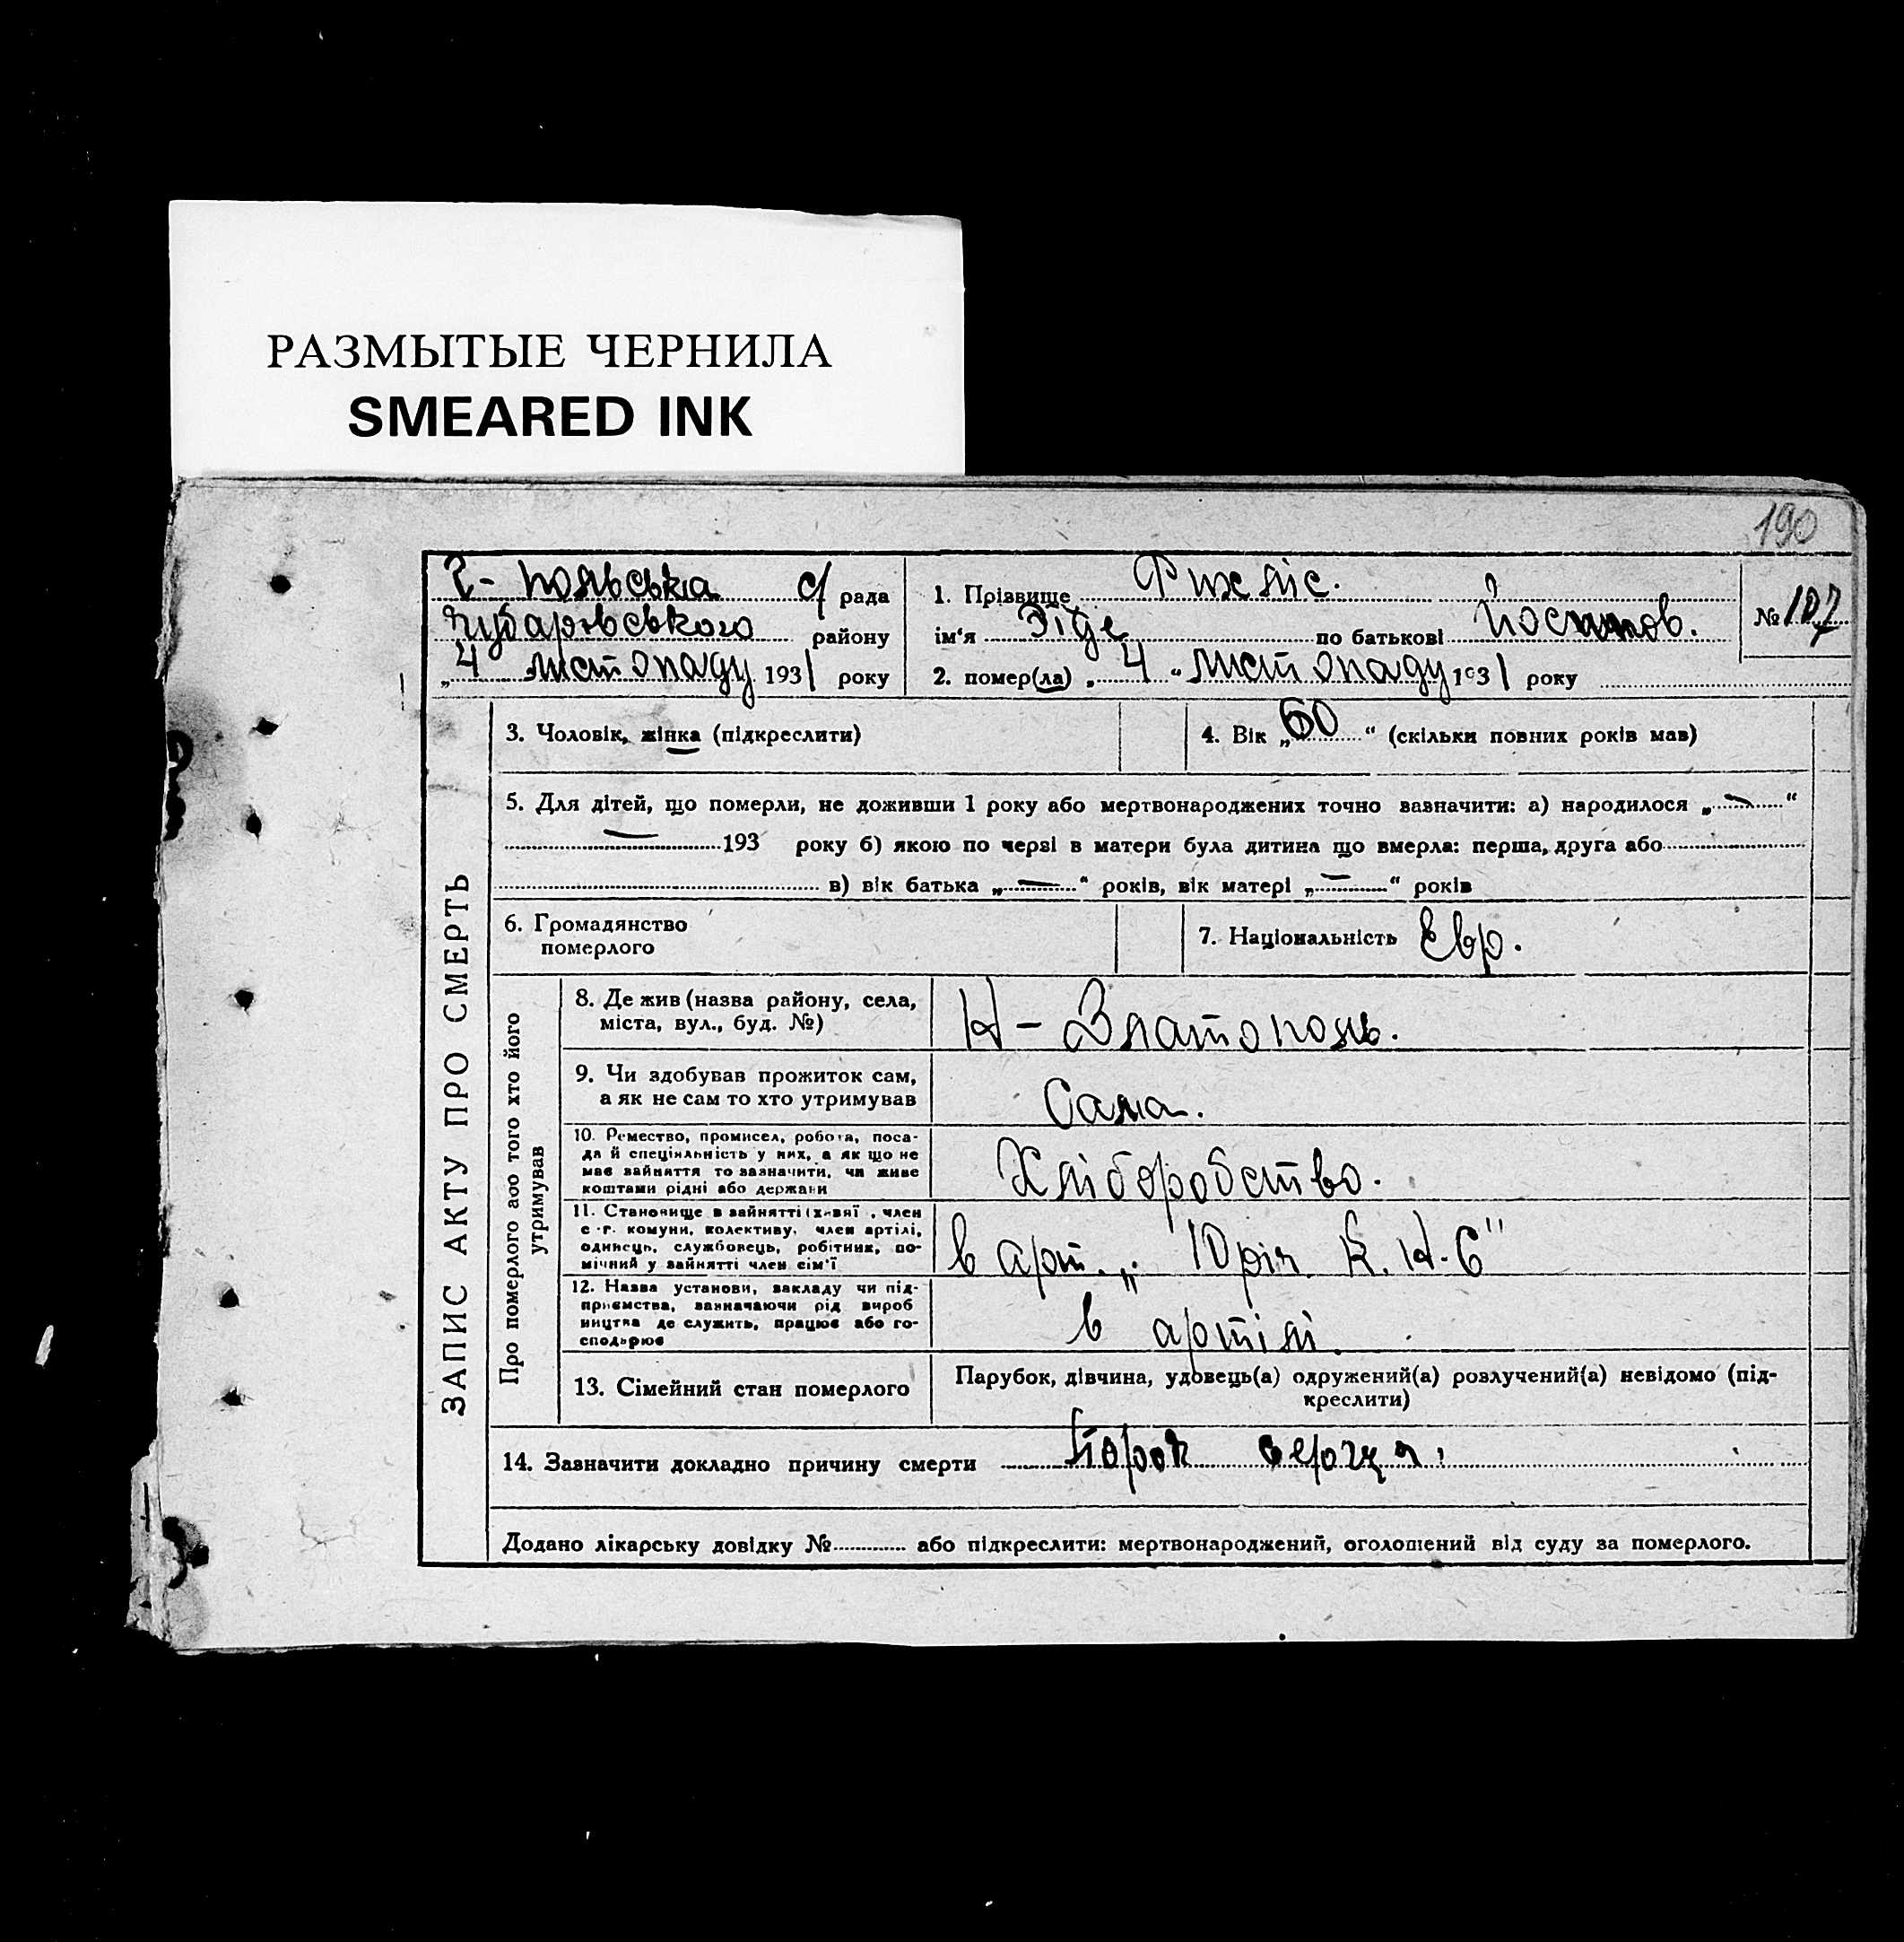 РАЗМЫТЫЕ ЧЕРНИЛА
SMEARED INK
190
Г- Польська с/ рада
Чубарівського району
„ 4 листопаду 1931 року
1. Прізвище Фихліс.
ім'я Зіде по батькові
2. помер(ла) „ 4 “ листопаду 1931 року
№ 107
3. Чоловік, жінка (підкреслити)
4. Вік „ 60 “ (скільки повних років мав)
5. Для дітей, що померли, не доживши 1 року або мертвонароджених точно вазначити: а) народилося „ — “
— 193 року б) якою по черзі в матери була дитина що вмерла: перша, друга або
в) вік батька „ — “ років, вік матері „ — “ років
6. Громадянство
померлого
7. Національність Евр.
ЗАПИС АКТУ ПРО СМЕРТЬ
Про померлого або того хто його
утримував
8. Де жив (назва району, села,
міста, вул., буд. №)
Н - Златополь.
9. Чи здобував прожиток сам,
а як не сам то хто утримував
Сама.
10. Ремество, промисел, робота, поса-
да й спеціяльність у них, а як що не
має зайняття то зазначити, чи живе
коштами рідні або держави
Хліборобство.
11. Становище в зайнятті (хазяї, член
с-г. комуни, колективу, член артілі,
одинець, службовець, робітник, по-
мічний у зайнятті член сім'ї
в арт. „ 10 річ К. Н. С"
12. Назва установи, закладу чи під-
приємства, вазначаючи рід вироб
ництва де служить, працює або го-
сподарює
в артілі.
13. Сімейний стан померлого
Парубок, дівчина, удовець(а) одружений(а) розлучений(а) невідомо (під-
креслити)
14. Зазначити докладно причину смерти Порок серця.
Додано лікарську довідку № або підкреслити: мертвонароджений, оголошений від суду за померлого.